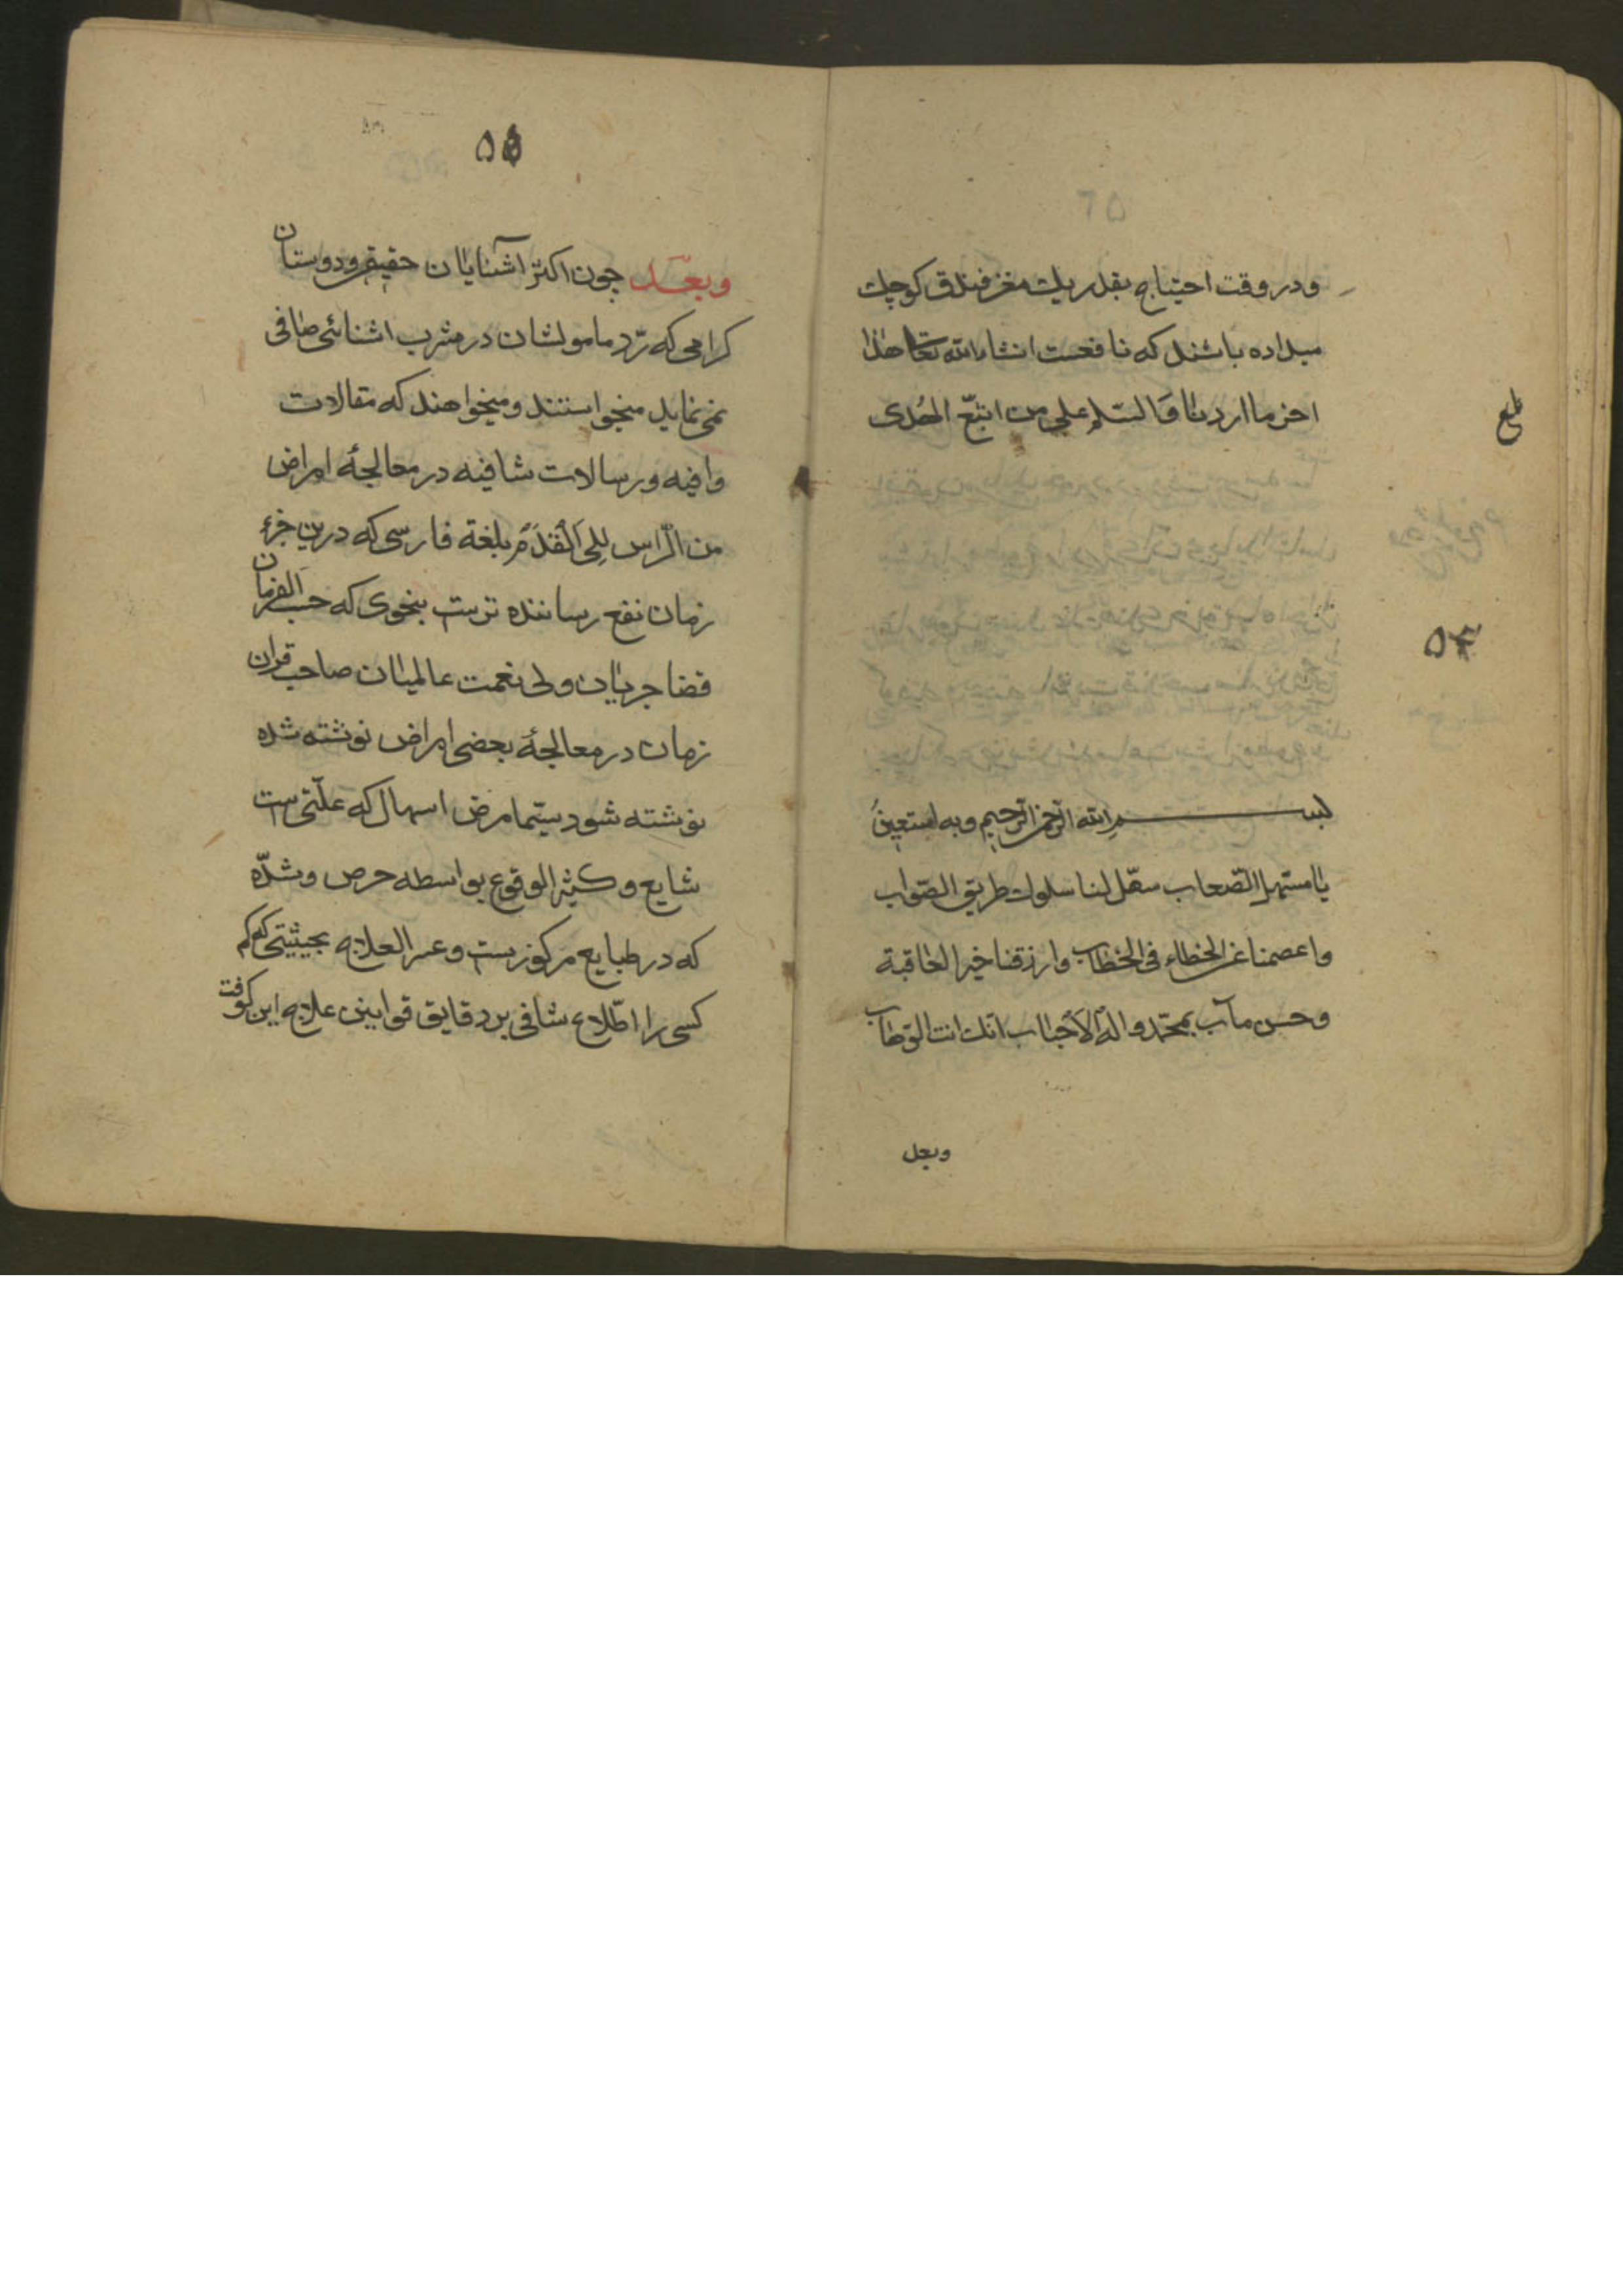 ودر وقت احتیاج بقدر یک مغز فندق کوچک
میداده باشند که نافعست انشاءالله تعا هذا
اخر ما اردنا والسلم علی من اتبع الهدی
بلغ
۵۴
بسم الله الرحمن الرحیم وبه نستعین
یا مسهل الصعاب سهل لنا سلوک طریق الصواب
واعصمنا عن الخطاء فی الخطاب وارزقنا خیر العاقبة
وحسن مآب بمحمد واله الأحباب انک انت الوهاب
وبعد
۵۵
وبعد چون اکثر آشنایان حقیقی ودوستان
کرامی که رد مامولشان در مشرب اشنائی صافی
نمی نماید میخواستند ومیخواهند که مقالات
وافیه ورسالات شافیه در معالجهٔ امراض
من الرأس الی القدم بلغة فارسی که درین جزء
زمان نفع رساننده ترست بنحوی که حسب الفرمان
قضا جریان ولی نعمت عالمیان صاحب قران
زمان در معالجهٔ بعضی امراض نوشته شده
نوشته شود سیما مرض اسهال که علتی ست
شایع وکثیر الوقوع بواسطه حرص وشدّه
که در طبایع مرکوزست وعسر العلاج بحیثیتی که کم
کسی را اطلاع شافی بر دقایق قوانین علاج این کوفت